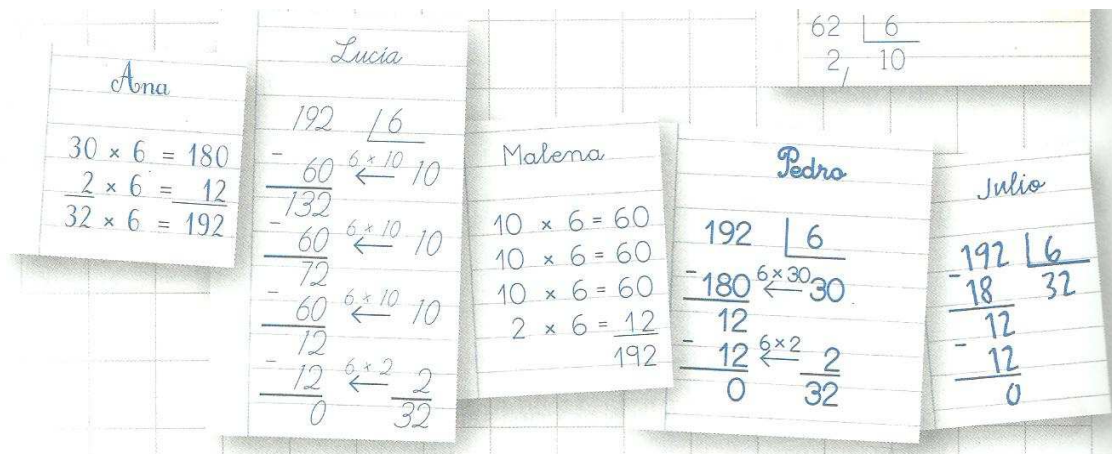 Ana
30 × 6 = 180
2 × 6 = 12
32 × 6 = 192
Lucía
192 6
- 60 ← 6 × 10 10
132
- 60 ← 6 × 10 10
72
- 60 ← 6 × 10 10
12
- 12 ← 6 × 2 2
0 32
Malena
10 × 6 = 60
10 × 6 = 60
10 × 6 = 60
2 × 6 = 12
192
62 6
2/ 10
Pedro
192 6
- 180 ← 6 × 30 30
12
- 12 ← 6 × 2 2
0 32
Julio
- 192 6
18 32
12
- 12
0